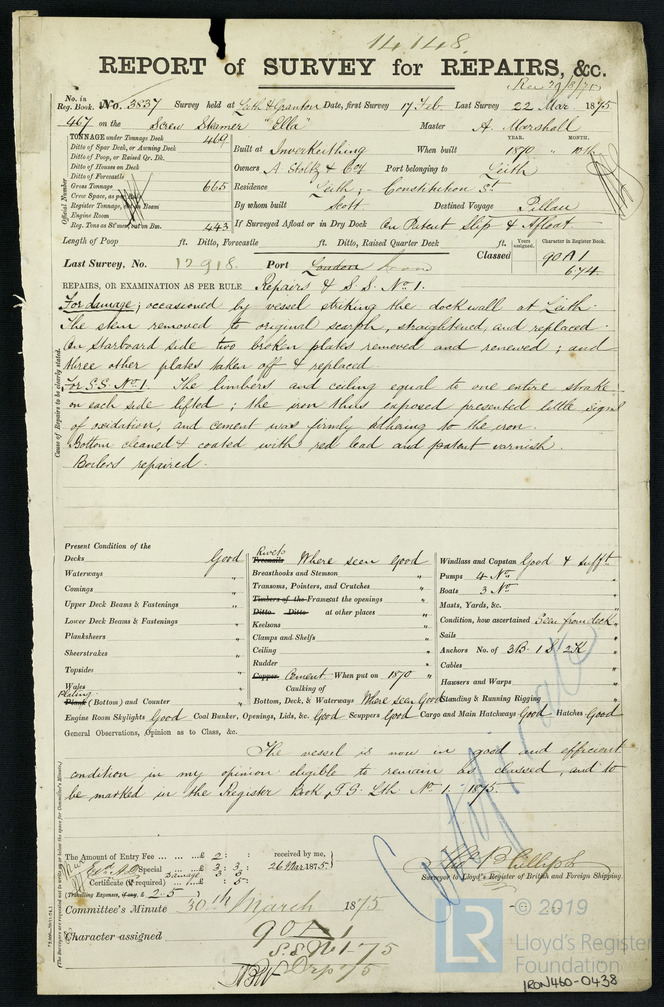 14148
REPORT of SURVEY for REPAIRS, &c.
Rec 29/3/75
No. in Reg. Book. No. 3837 Survey held at Leith & Granton Date, first Survey 17 Feb. Last Survey 22 Mar 1875
467 on the Screw Steamer "Ella" Master A. Marshall
TONNAGE under Tonnage Deck 469
Ditto of Spar Deck, or Awning Deck
Ditto of Poop, or Raised Qr. Dk.
Ditto of Houses on Deck
Ditto of Forecastle
Gross Tonnage 665
Crew Space, as per
Register Tonnage,
Engine Room
Reg. Tons as St'mer, cut on Bm. 443
Official Number
Built at Inverkeithing When built YEAR. 1870 MONTH. 10th
Owners A Stoltz & Coy Port belonging to Leith
Residence Leith, - Constitution St
By whom built Scott Destined Voyage Pillau
If Surveyed Afloat or in Dry Dock On Patent Slip & Afloat
Length of Poop ft. Ditto, Forecastle ft. Ditto, Raised Quarter Deck ft.
Years assigned. Character in Register Book.
Classed 90A1
6.74
Last Survey, No. 12918. Port London
REPAIRS, OR EXAMINATION AS PER RULE Repairs & S.S. No. 1.
Cause of Repairs to be clearly stated.
For damage; occasioned by vessel striking the dock wall at Leith.
The stem removed to original scarph, straightened, and replaced.
On Starboard side two broken plates removed and renewed; and
three other plates taken off & replaced.
For S.S. No. 1. The limbers and ceiling equal to one entire strake
on each side lifted; the iron thus exposed presented little signs
of oxidation, and cement was firmly adhering to the iron.
Bottom cleaned & coated with red lead and patent varnish.
Boilers repaired.
Present Condition of the
Decks Good
Waterways "
Comings "
Upper Deck Beams & Fastenings "
Lower Deck Beams & Fastenings "
Planksheers "
Sheerstrakes "
Topsides "
Wales "
Plating
Plank (Bottom) and Counter "
Rivets
Treenails Where seen good
Breasthooks and Stemson "
Transoms, Pointers, and Crutches "
Timbers of the Frames at the openings "
Ditto Ditto at other places "
Keelsons "
Clamps and Shelfs "
Ceiling "
Rudder "
Copper Cement When put on 1870 "
Caulking of
Bottom, Deck, & Waterways Where seen Good
Windlass and Capstan Good & sufft
Pumps 4 No.
Boats 3 No.
Masts, Yards, &c.
Condition, how ascertained Seen from deck
Sails
Anchors No. of 3B. 1S 2K
Cables
Hausers and Warps
Standing & Running Rigging
Engine Room Skylights Good Coal Bunker, Openings, Lids, &c. Good Scuppers Good Cargo and Main Hatchways Good Hatches Good
General Observations, Opinion as to Class, &c.
The vessel is now in good and efficient
condition in my opinion eligible to remain as classed, and to
be marked in the Register Book, S.S. Lth No. 1. - 1875.
Certificate
The Amount of Entry Fee £ 2 : : received by me,
Special £ 3 : 3 : 26 Mar 1875
Damage 3 3
Certificate (if required) : 5 :
(Travelling Expenses, if any, £ 2.5)
Surveyor to Lloyd's Register of British and Foreign Shipping.
Committee's Minute 30th March 1875
Character assigned 90A1
S.S. No 1-75
© 2019
LR
Lloyd's Register
Foundation
IRON460-0438